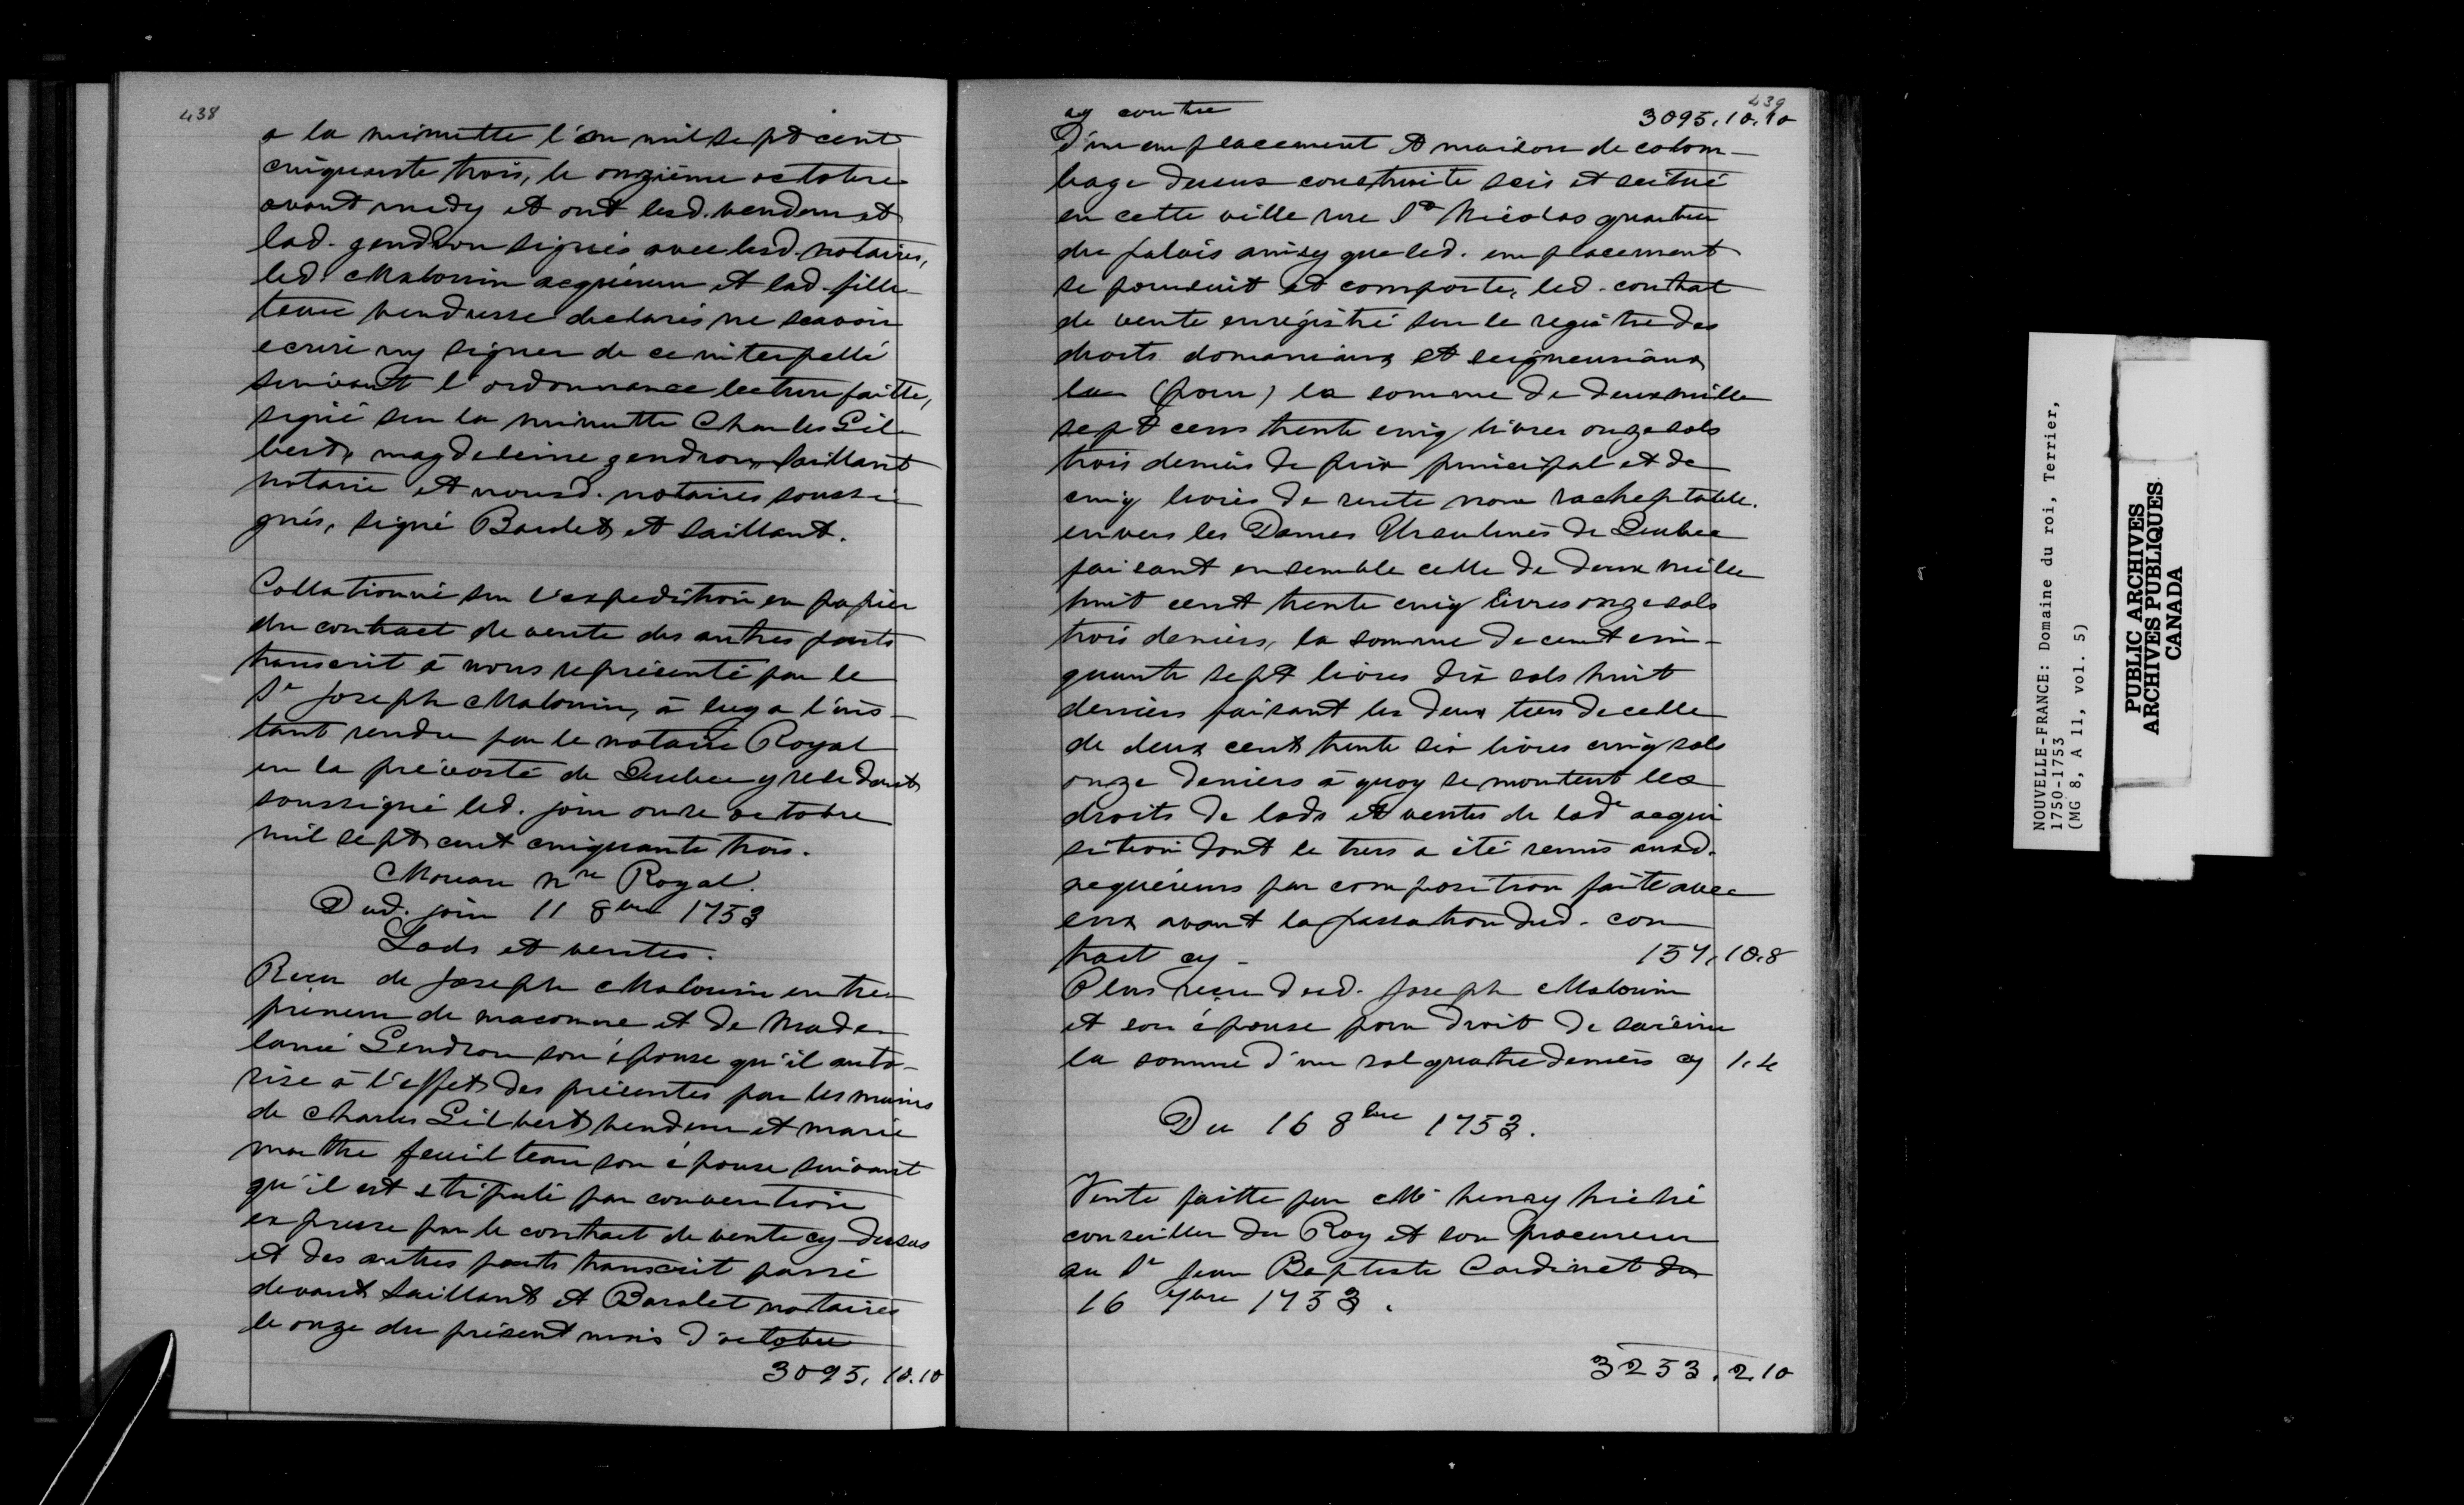 438
a la minutte l'an mil sept cent
cinquante trois, le onziéme octobre
avant midy et ont lesd. vendeur et
lad. gendron signés avec lesd. notaires,
led. Malouin acquéreur et lad. feille
teau vendresse declarés ne scavoir
ecrire ny signer de ce interpellé
suivant l'ordonnance lecture faitte,
signé sur la minutte Charles Gil
bert, magdeleine gendron, Saillant
notaire et nousd. notaires soussi
gnés, signé Barolet et Saillant.
Collationné sur l'expedition en papier
du contract de vente des autres parts
transcrit à nous représenté par le
Sr Joseph Malouin, à luy a l'ins-
tant rendu par le notaire Royal
en la prévosté de Quebec y residant
soussigné led. jour onze octobre
mil sept cent cinquante trois.
Moreau nre Royal.
Dud. jour 11 8bre 1753
Lods et ventes.
Recu de Joseph Malouin entre
preneur de maconne et de Made
laine Gendron son épouse qu'il auto-
rise à l'effet des présentes par les mains
de Charles Gilbert vendeur et marie
marthe feuilteau son épouse suivant
qu'il est stipulé par convention
expresse par le contract de vente cy-dessus
et des autres parts transcrit passé
devant Saillant et Barolet notaires
le onze du présent mois d'octobre
3095. 10.10
439
cy contre 3095. 10. 10
D'un emplacement et maison de colom-
bage dessus construite scis et scitué
en cette ville rue St Nicolas quartier
du palais ainsy que led. emplacement
se poursuit et comporte, led. contrat
de vente enrégistré sur le registre des
droits domaniaux et seigneuriaux
la (pour) la somme de deux mille
sept cens trente cinq livres onze sols
trois deniers de prix principal et de
cinq livres de rente non racheptable
envers les Dames Ursulines de Quebec
faisant ensemble celle de deux mille
huit cent trente cinq livres onze sols
trois deniers, la somme de cent cin-
quante sept livres dix sols huit
deniers faisant les deux tiers de celle
de deux cent trente six livres cinq sols
onze deniers à quoy se montent les
droits de lods et ventes de lade acqui
sition dont le tiers a été remis auxd.
acquéreurs par composition faite avec
eux avant la passation dud. con
tract cy - 157. 10.8
Plus reçu dud. Joseph Malouin
et son épouse pour droit de saisine
la somme d'un sol quatre deniers cy 1.4
Du 16 8bre 1753.
Vente faitte par Mr henry hiché
conseiller du Roy et son procureur
au Sr Jean Baptiste Cardinet du
16 7bre 1753.
3253. 2.10
NOUVELLE-FRANCE: Domaine du roi, Terrier,
1750-1753
(MG 8, A 11, vol. 5)
PUBLIC ARCHIVES
ARCHIVES PUBLIQUES
CANADA